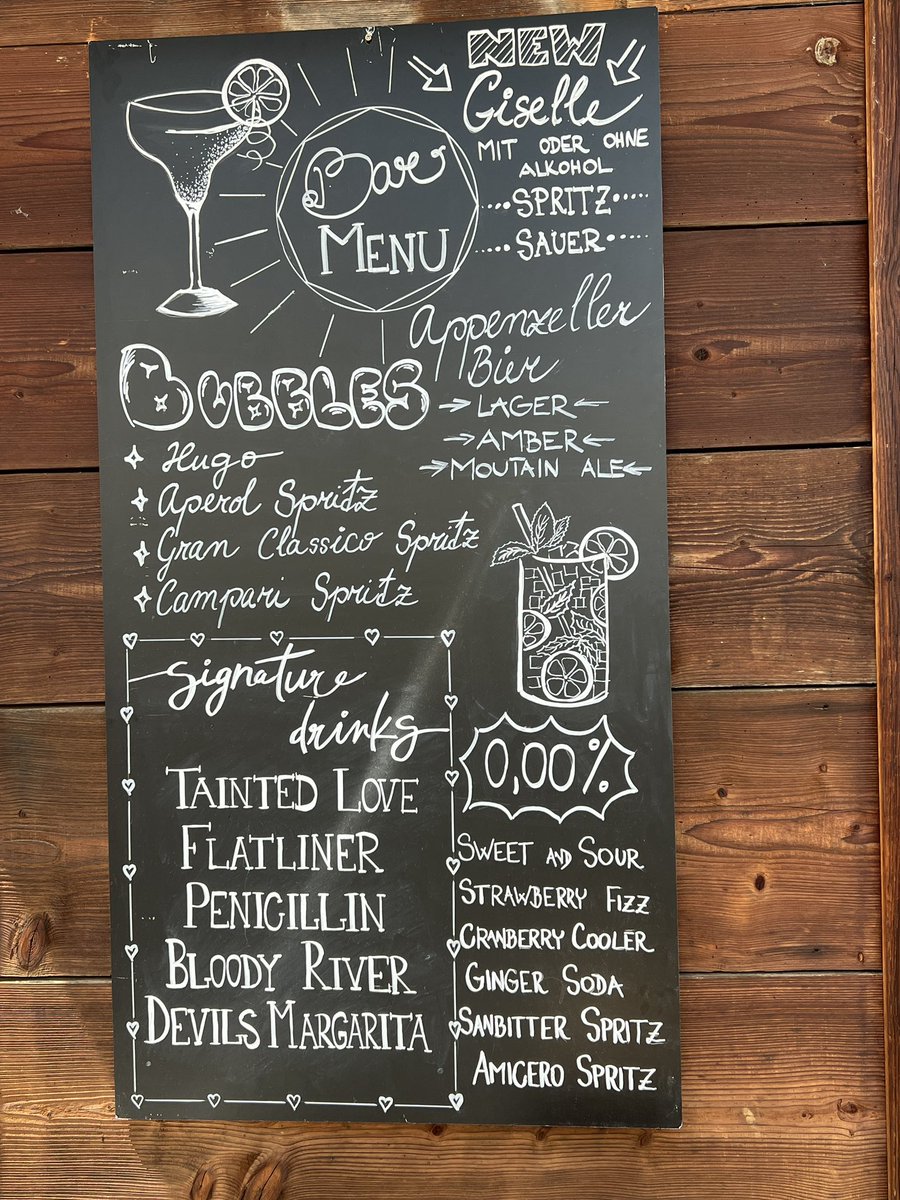 Bar
MENU
NEW
Giselle
MIT ODER OHNE
ALKOHOL
SPRITZ
SAUER
Appenzeller
Bier
LAGER
AMBER
MOUTAIN ALE
BUBBLES
Hugo
Aperol Spritz
Gran Classico Spritz
Campari Spritz
signature
drinks
TAINTED LOVE
FLATLINER
PENICILLIN
BLOODY RIVER
DEVILS MARGARITA
0,00%
SWEET AND SOUR
STRAWBERRY FIZZ
CRANBERRY COOLER
GINGER SODA
SANBITTER SPRITZ
AMICERO SPRITZ